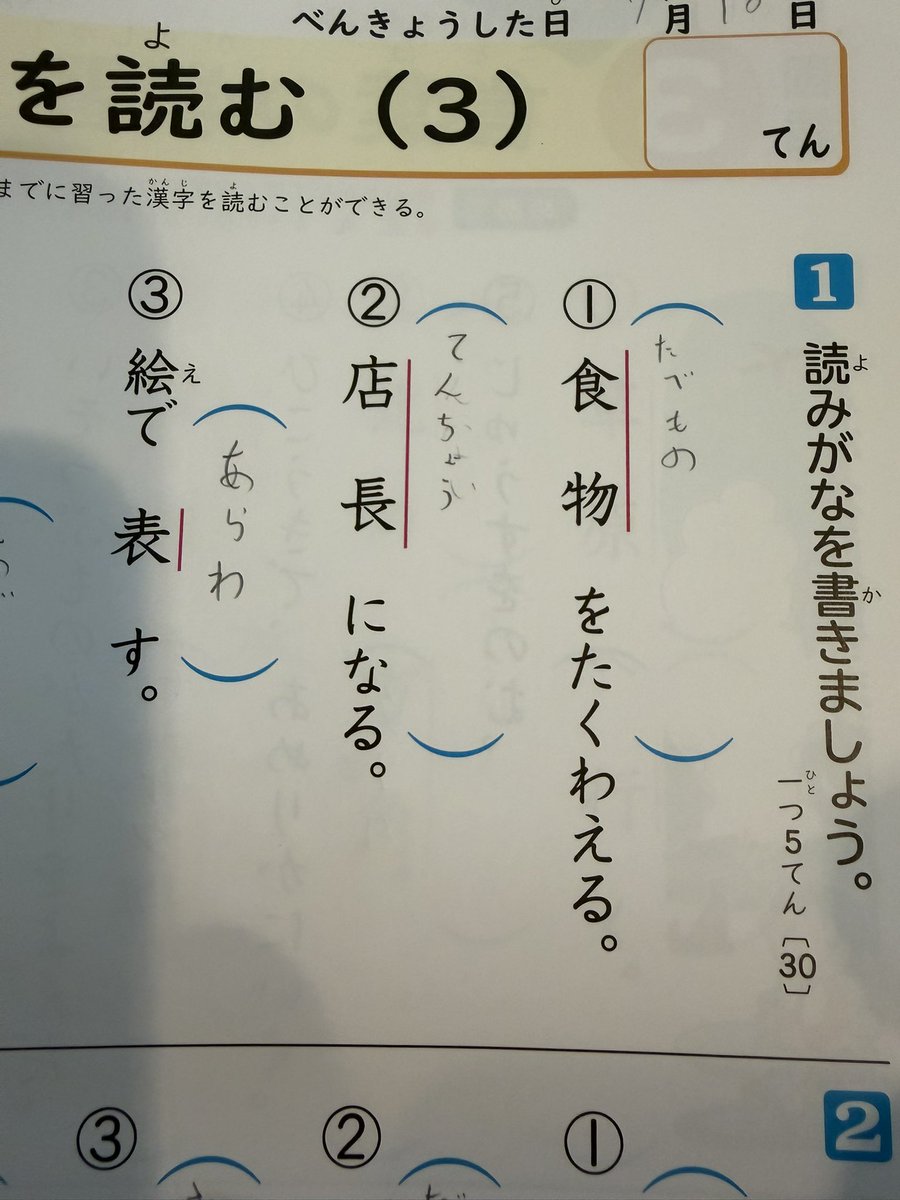 べんきょうした日 7月10日
を読む（3）
よ
てん
までに習った漢字を読むことができる。
かんじ
よ
1
読みがなを書きましょう。
よ
か
一つ5てん〔30〕
ひと
①食物をたくわえる。
たべもの
②店長になる。
てんちょう
③絵で表す。
え
あらわ
2
①
②
③